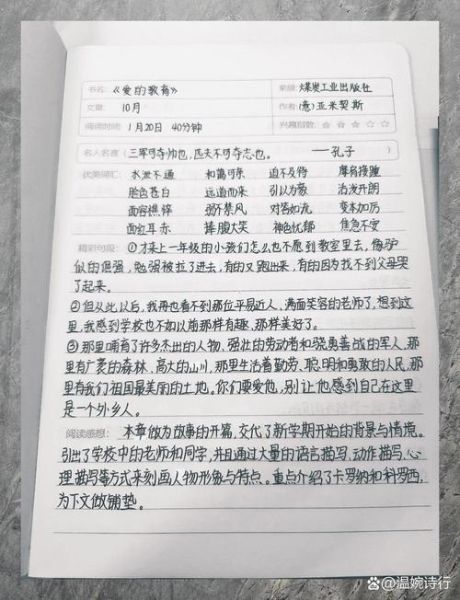 书名: 《爱的教育》 来源: 煤炭工业出版社
文章: 10月 作者: (意)亚米契斯
阅读时间: 1月20日 40分钟 兴趣指数: ☆ ☆ ☆ ☆ ☆
名人名言 (三军可夺帅也，匹夫不可夺志也。 ——孔子 )
优美词汇: 水泄不通 和蔼可亲 迫不及待 摩肩接踵
脸色苍白 远道而来 引以为豪 活泼开朗
面容憔悴 弱不禁风 对答如流 变本加厉
面红耳赤 捧腹大笑 神色忧郁 焦急不安
精彩句段: ①才来上一年级的小孩们怎么也不愿到教室里去，像驴
似的倔强，勉强被拉了进去，有的又跑出来，有的因为找不到父母哭
了起来。
②但从此以后，我再也看不到那位平易近人、满面笑容的老师了，想到这
里，我感到学校也不如以前那样有趣，那样美好了。
③那里哺育了许多杰出的人物，强壮的劳动者和骁勇善战的军人，那
里有广袤的森林，高大的山川，那里生活着勤劳、聪明和勇敢的人民，那
里有我们祖国最美丽的土地。你们要爱他，别让他感到自己在这里
是一个外乡人。
阅读感想: 本章做为故事的开篇，交代了新学期开始的背景与情境。
引出了学校中的老师和同学，并且通过大量的语言描写，动作描写，心
理描写等方式来刻画人物形象与特点。重点介绍了卡罗纳和科罗西，
为下文做铺垫。
百家号@温婉诗行